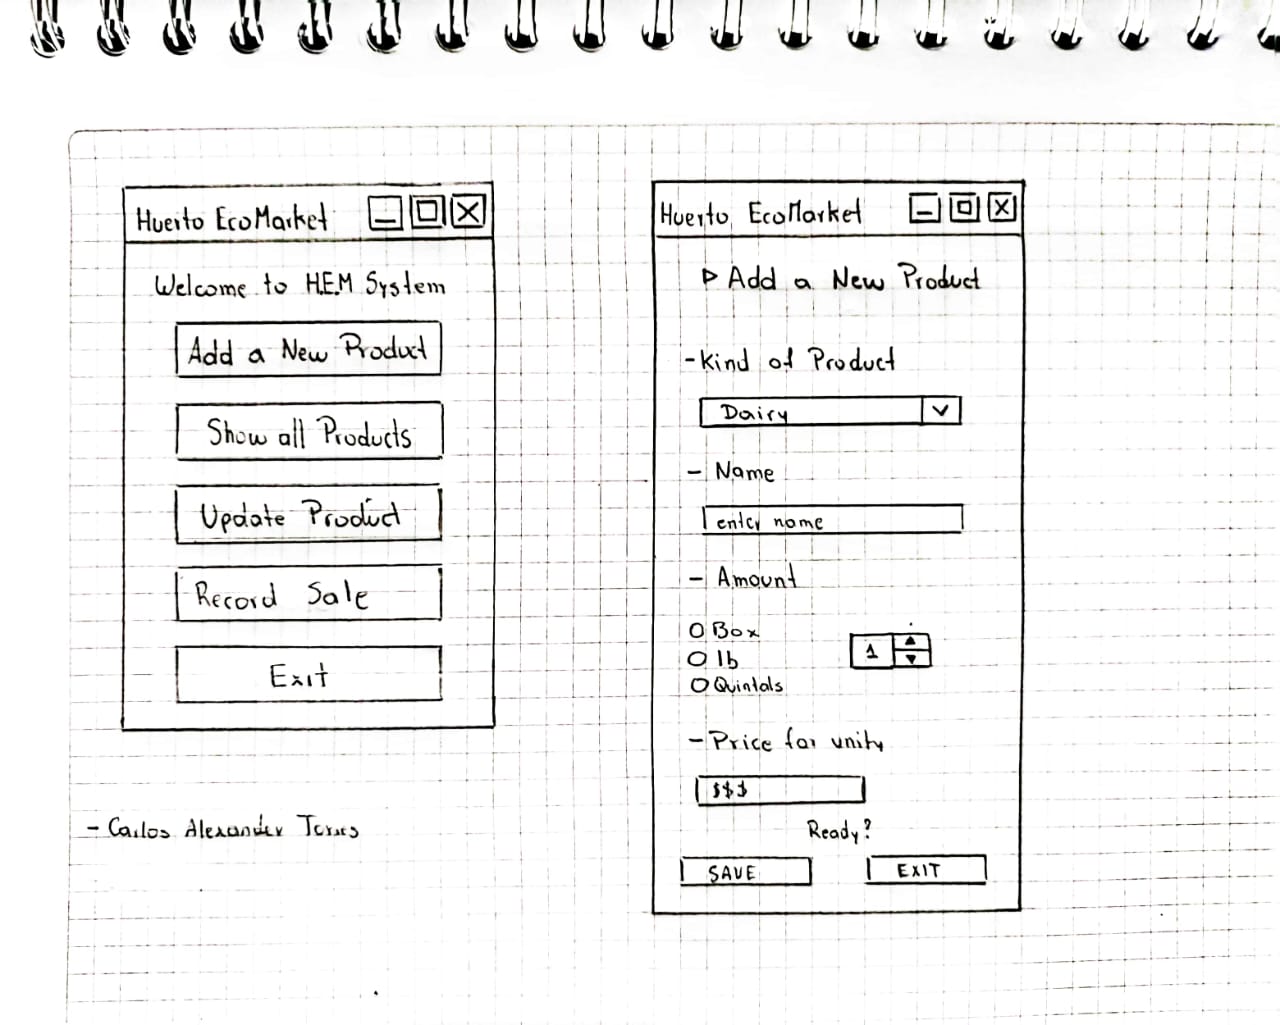 Huerto EcoMarket
Welcome to H.E.M System
Add a New Product
Show all Products
Update Product
Record Sale
Exit
- Carlos Alexander Torres
Huerto EcoMarket
Add a New Product
- Kind of Product
Dairy
- Name
enter name
- Amount
Box
lb
Quintals
1
- Price for unity
$$$
Ready?
SAVE
EXIT